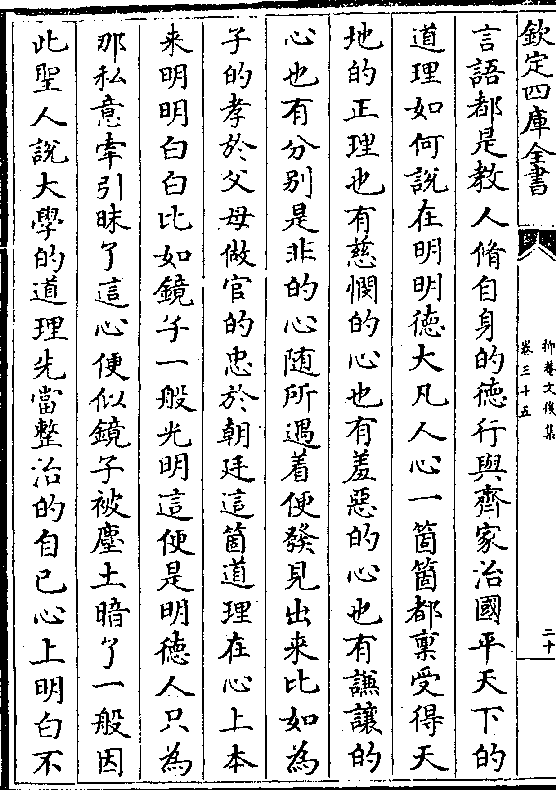 欽定四庫全書
抑菴文後集
卷三十五
二十
言語都是教人脩自身的徳行與齊家治國平天下的
道理如何説在明明徳大凡人心一箇箇都禀受得天
地的正理也有慈憫的心也有羞惡的心也有謙讓的
心也有分别是非的心随所遇着便發見出来比如為
子的孝於父母做官的忠於朝廷這箇道理在心上本
来明明白白比如鏡子一般光明這便是明徳人只為
那私意牽引昧了這心便似鏡子被塵土暗了一般因
此聖人説大學的道理先當整治的自己心上明白不